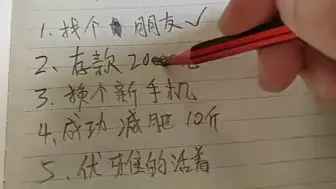 1.找个朋友✓
2、存款20元
3.换个新手机
4.成功减肥10斤
5.优雅的活着